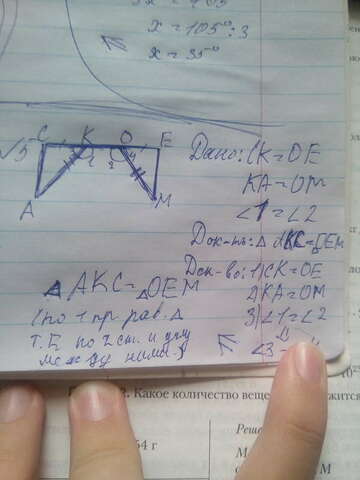 x = 105° : 3
x = 35°
√5
C K O E
1 2
A M
Дано: CK = OE
KA = OM
∠1 = ∠2
Док-ть: Δ AKC = ΔOEM
Док-во: 1) CK = OE
2) KA = OM
3) ∠1 = ∠2
⇓
∠3 =
Δ AKC = ΔOEM
(по 1 пр. рав. Δ
Т.Е. по 2 ст. и углу
между ними.)
Какое количество веще
жится
54 г
Реше